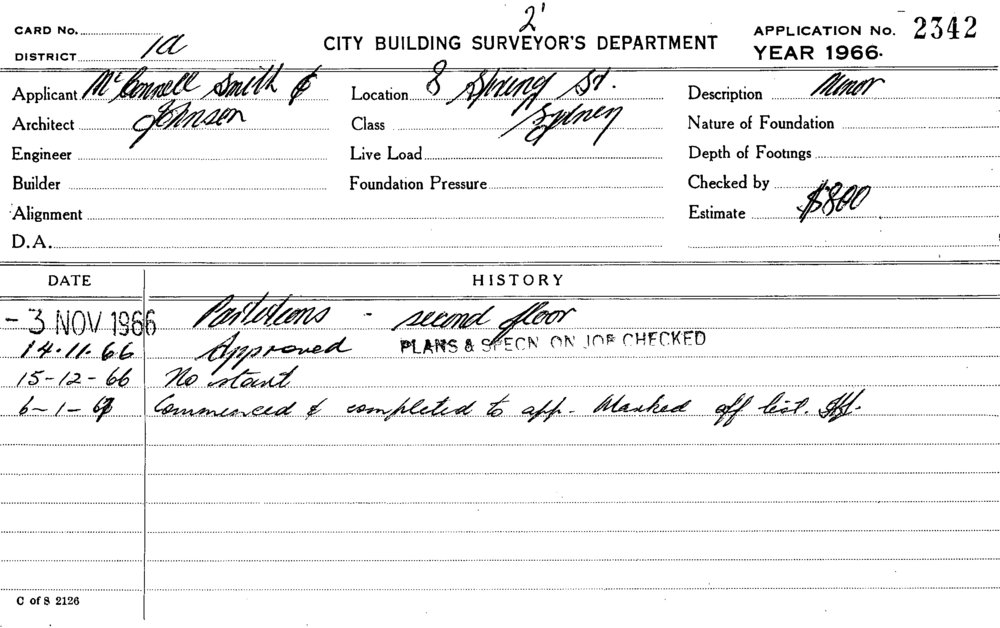 2'
CARD No.
CITY BUILDING SURVEYOR'S DEPARTMENT
APPLICATION No. 2342
DISTRICT 1a
YEAR 1966.
Applicant McConnell Smith & Location 8 Spring St. Description Minor
Architect Johnson Class Sydney Nature of Foundation
Engineer Live Load Depth of Footings
Builder Foundation Pressure Checked by
Alignment Estimate $800
D.A.
DATE HISTORY
- 3 NOV 1966 Partitions - second floor
14.11.66 Approved PLANS & SPECN ON JOB CHECKED
15-12-66 No start
6-1-67 Commenced & completed to app. Marked off list.
C of S 2126